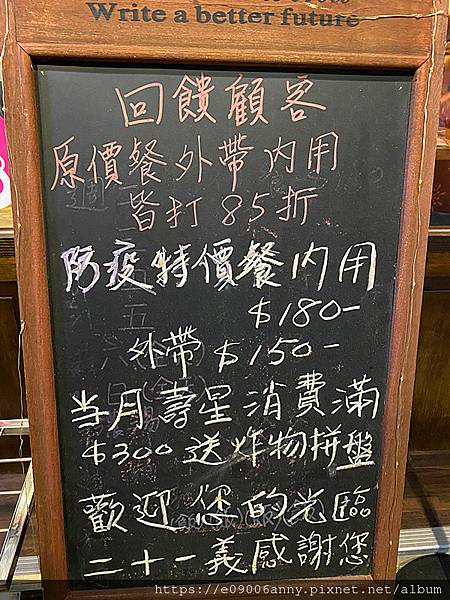 Write a better future
回饋顧客
原價餐外帶內用
皆打85折
防疫特價餐內用
$180-
外帶$150-
當月壽星消費滿
$300送炸物拼盤
歡迎您的光臨
二十一義感謝您
https://e09006anny.pixnet.net/album